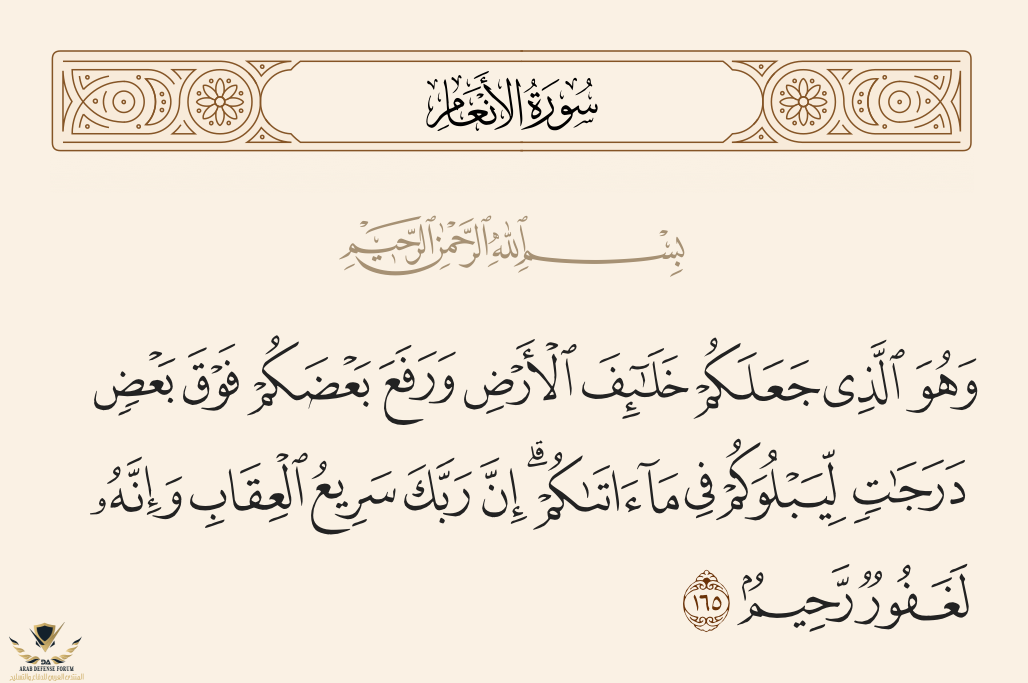 سُورَةُ الأَنْعَامِ
بِسْمِ ٱللَّهِ ٱلرَّحْمَٰنِ ٱلرَّحِيمِ
وَهُوَ ٱلَّذِى جَعَلَكُمْ خَلَٰٓئِفَ ٱلْأَرْضِ وَرَفَعَ بَعْضَكُمْ فَوْقَ بَعْضٍ
دَرَجَٰتٍ لِّيَبْلُوَكُمْ فِى مَآ ءَاتَىٰكُمْ ۗ إِنَّ رَبَّكَ سَرِيعُ ٱلْعِقَابِ وَإِنَّهُۥ
لَغَفُورٌ رَّحِيمٌۢ ١٦٥
DA
ARAB DEFENSE FORUM
المنتدى العربي للدفاع والتسليح